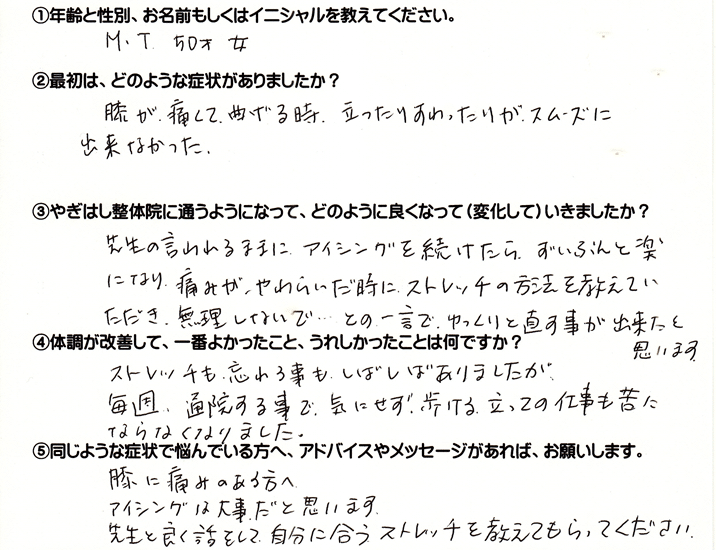 ①年齢と性別、お名前もしくはイニシャルを教えてください。
M.T. 50才 女
②最初は、どのような症状がありましたか？
膝が、痛くて、曲げる時、立ったりすわったりが、スムーズに
出来なかった。
③やぎはし整体院に通うようになって、どのように良くなって（変化して）いきましたか？
先生の言われるままに、アイシングを続けたら、ずいぶんと楽
になり、痛みが、やわらいだ時に、ストレッチの方法を教えてい
ただき、無理しないで…との一言で、ゆっくりと直す事が出来たと
思います
④体調が改善して、一番よかったこと、うれしかったことは何ですか？
ストレッチも、忘れる事も、しばしばありましたが、
毎週、通院する事で、気にせず、歩ける、立っての仕事も苦に
ならなくなりました。
⑤同じような症状で悩んでいる方へ、アドバイスやメッセージがあれば、お願いします。
膝に痛みのある方へ
アイシングは大事だと思います
先生と良く話をして、自分に合うストレッチを教えてもらってください